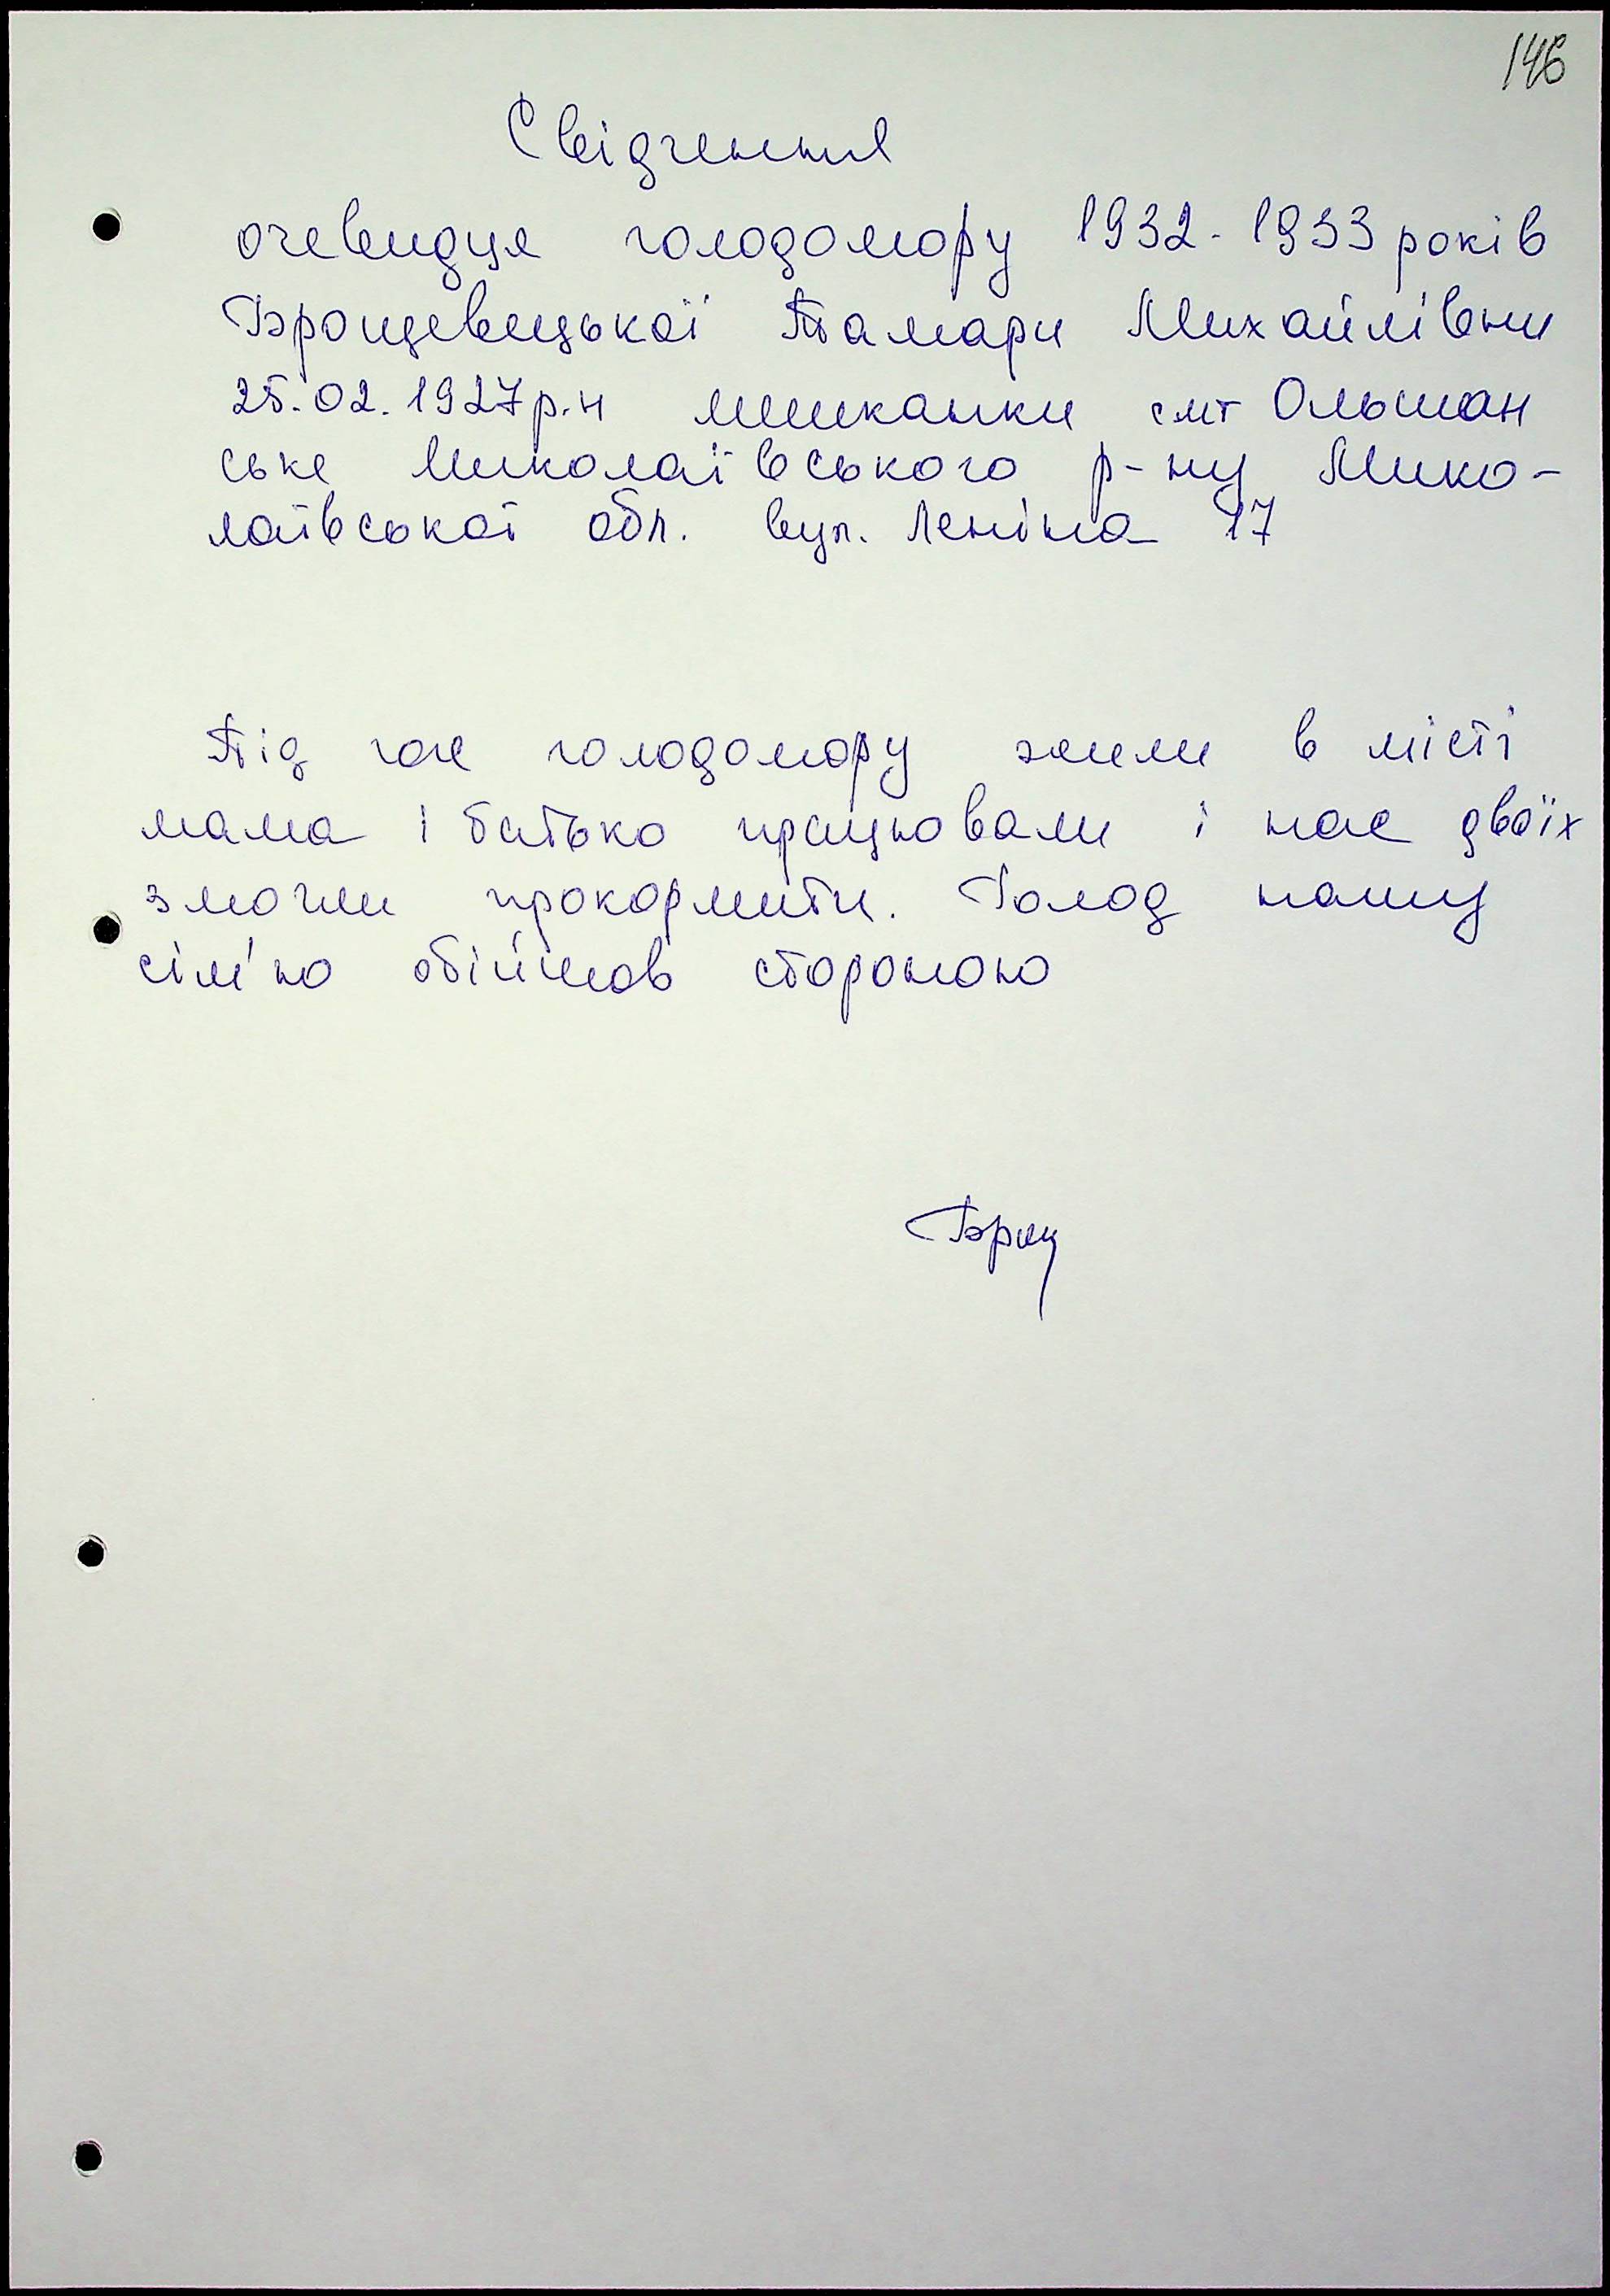 146
Свідчення
очевидця голодомору 1932-1933 років
Брощевецької Тамари Михайлівни
25.02.1927р.н мешканки смт Ольшан
ське Миколаївського р-ну Мико-
лаївської обл. вул. Леніна 17
Під час голодомору жили в місті
мама і батько працювали і нас двоїх
змогли прокормити. Голод нашу
сім'ю обійшов стороною